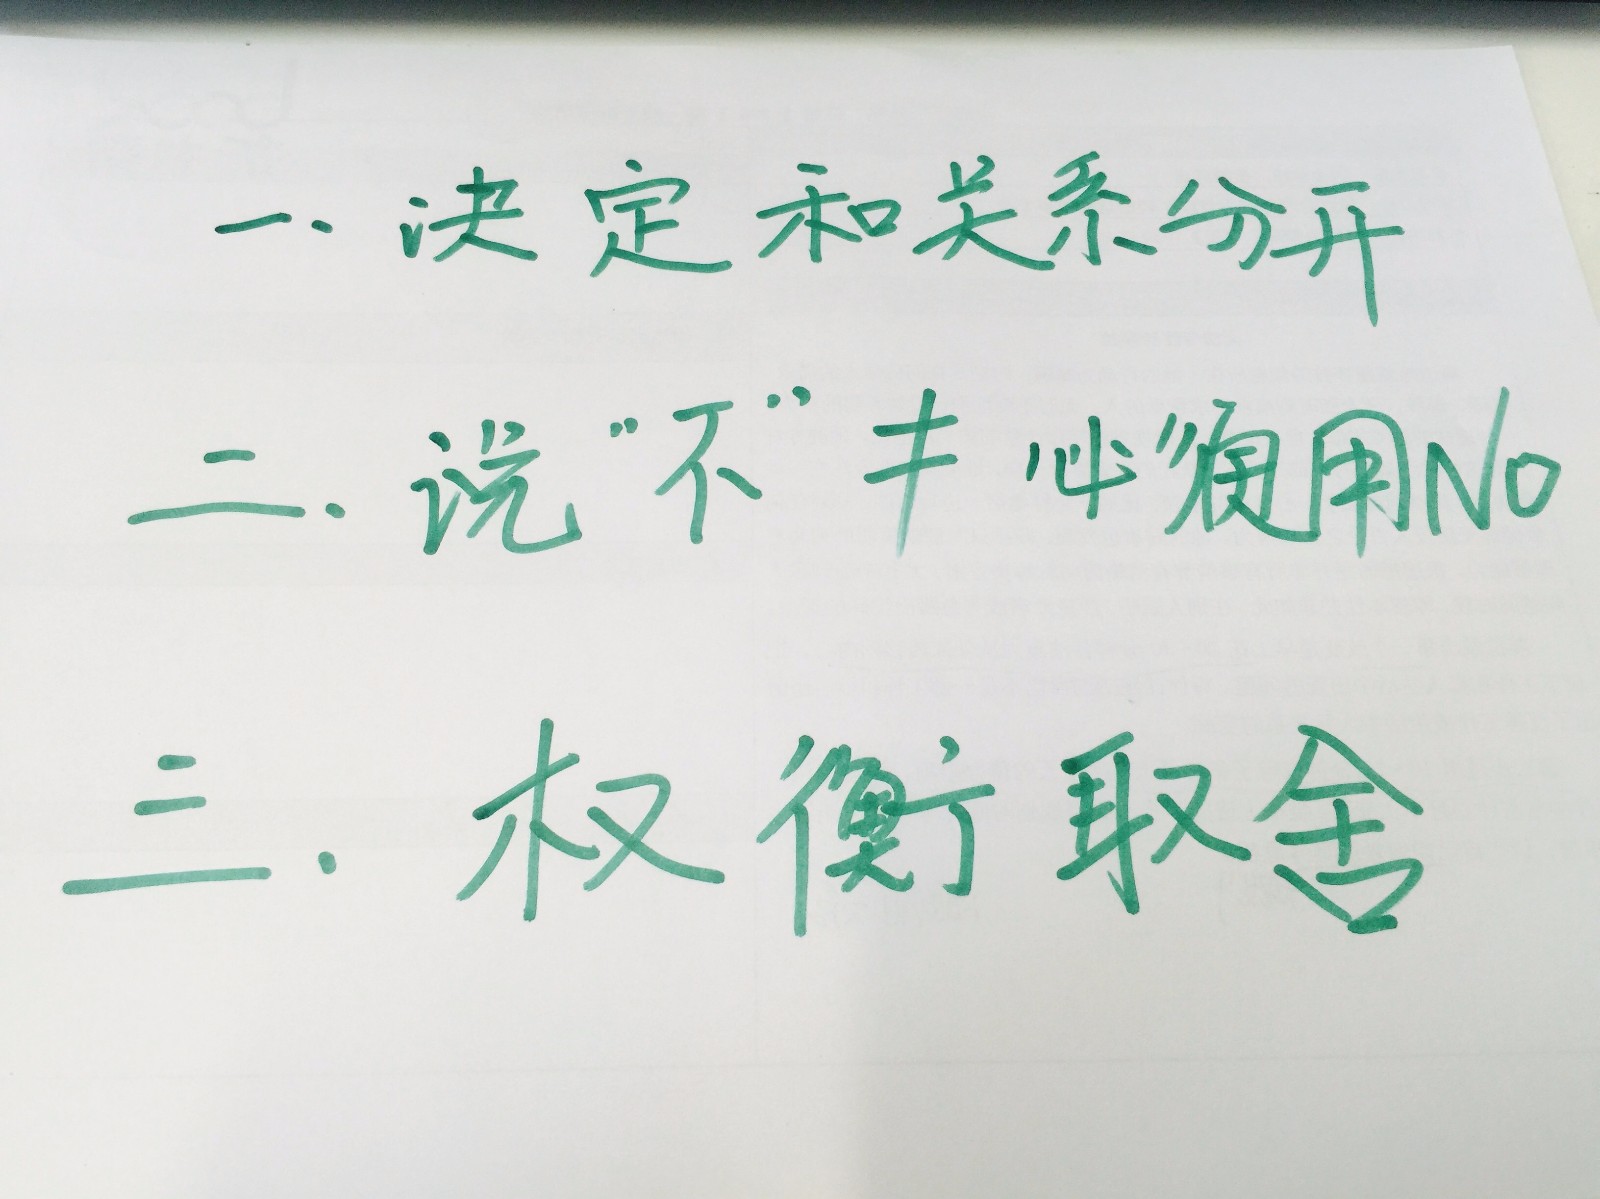 一.决定和关系分开
二.说“不”≠必须用No
三.权衡取舍